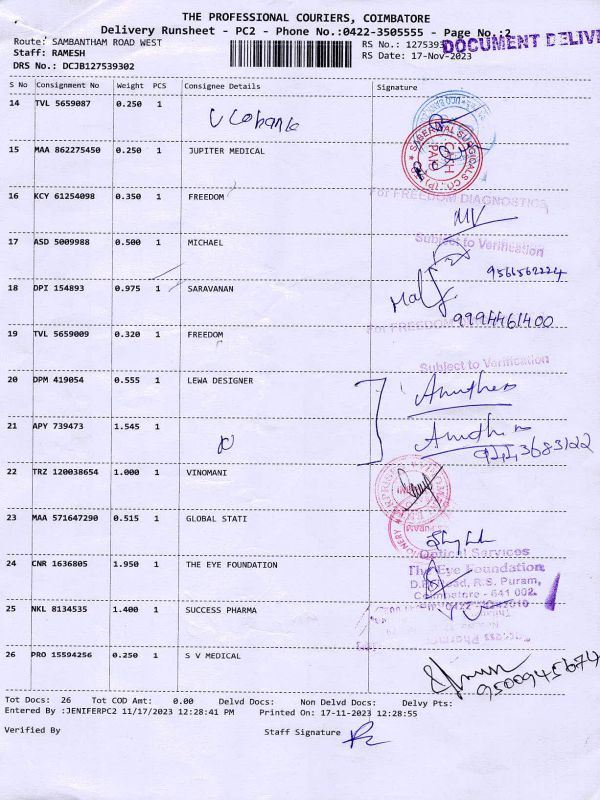 THE PROFESSIONAL COURIERS, COIMBATORE
Delivery Runsheet - PC2 - Phone No.:0422-3505555 - Page No.:2
Route: SAMBANTHAM ROAD WEST RS No.: 12753930
DOCUMENT DELIV
Staff: RAMESH RS Date: 17-Nov-2023
DRS No.: DCJB127539302
S No Consignment No Weight PCS Consignee Details Signature
14 TVL 5659087 0.250 1
15 MAA 862275450 0.250 1 JUPITER MEDICAL
SABERWAL SURGICALS CO.
CASH PAID
16 KCY 61254098 0.350 1 FREEDOM
For FREEDOM DIAGNOSTICS
MV
17 ASD 5009988 0.500 1 MICHAEL
Subject to Verification
9566562224
18 DPI 154893 0.975 1 SARAVANAN
9994461400
For FREEDOM
19 TVL 5659009 0.320 1 FREEDOM
Subject to Verification
20 DPM 419054 0.555 1 LEWA DESIGNER
21 APY 739473 1.545 1
22 TRZ 120038654 1.000 1 VINOMANI
23 MAA 571647290 0.515 1 GLOBAL STATI
24 CNR 1636805 1.950 1 THE EYE FOUNDATION
Optical Services
The Eye Foundation
R.S. Puram,
Coimbatore - 641 002.
25 NKL 8134535 1.400 1 SUCCESS PHARMA
26 PRO 15594256 0.250 1 S V MEDICAL
9500945674
Tot Docs: 26 Tot COD Amt: 0.00 Delvd Docs: Non Delvd Docs: Delvy Pts:
Entered By :JENIFERPC2 11/17/2023 12:28:41 PM Printed On: 17-11-2023 12:28:55
Verified By Staff Signature